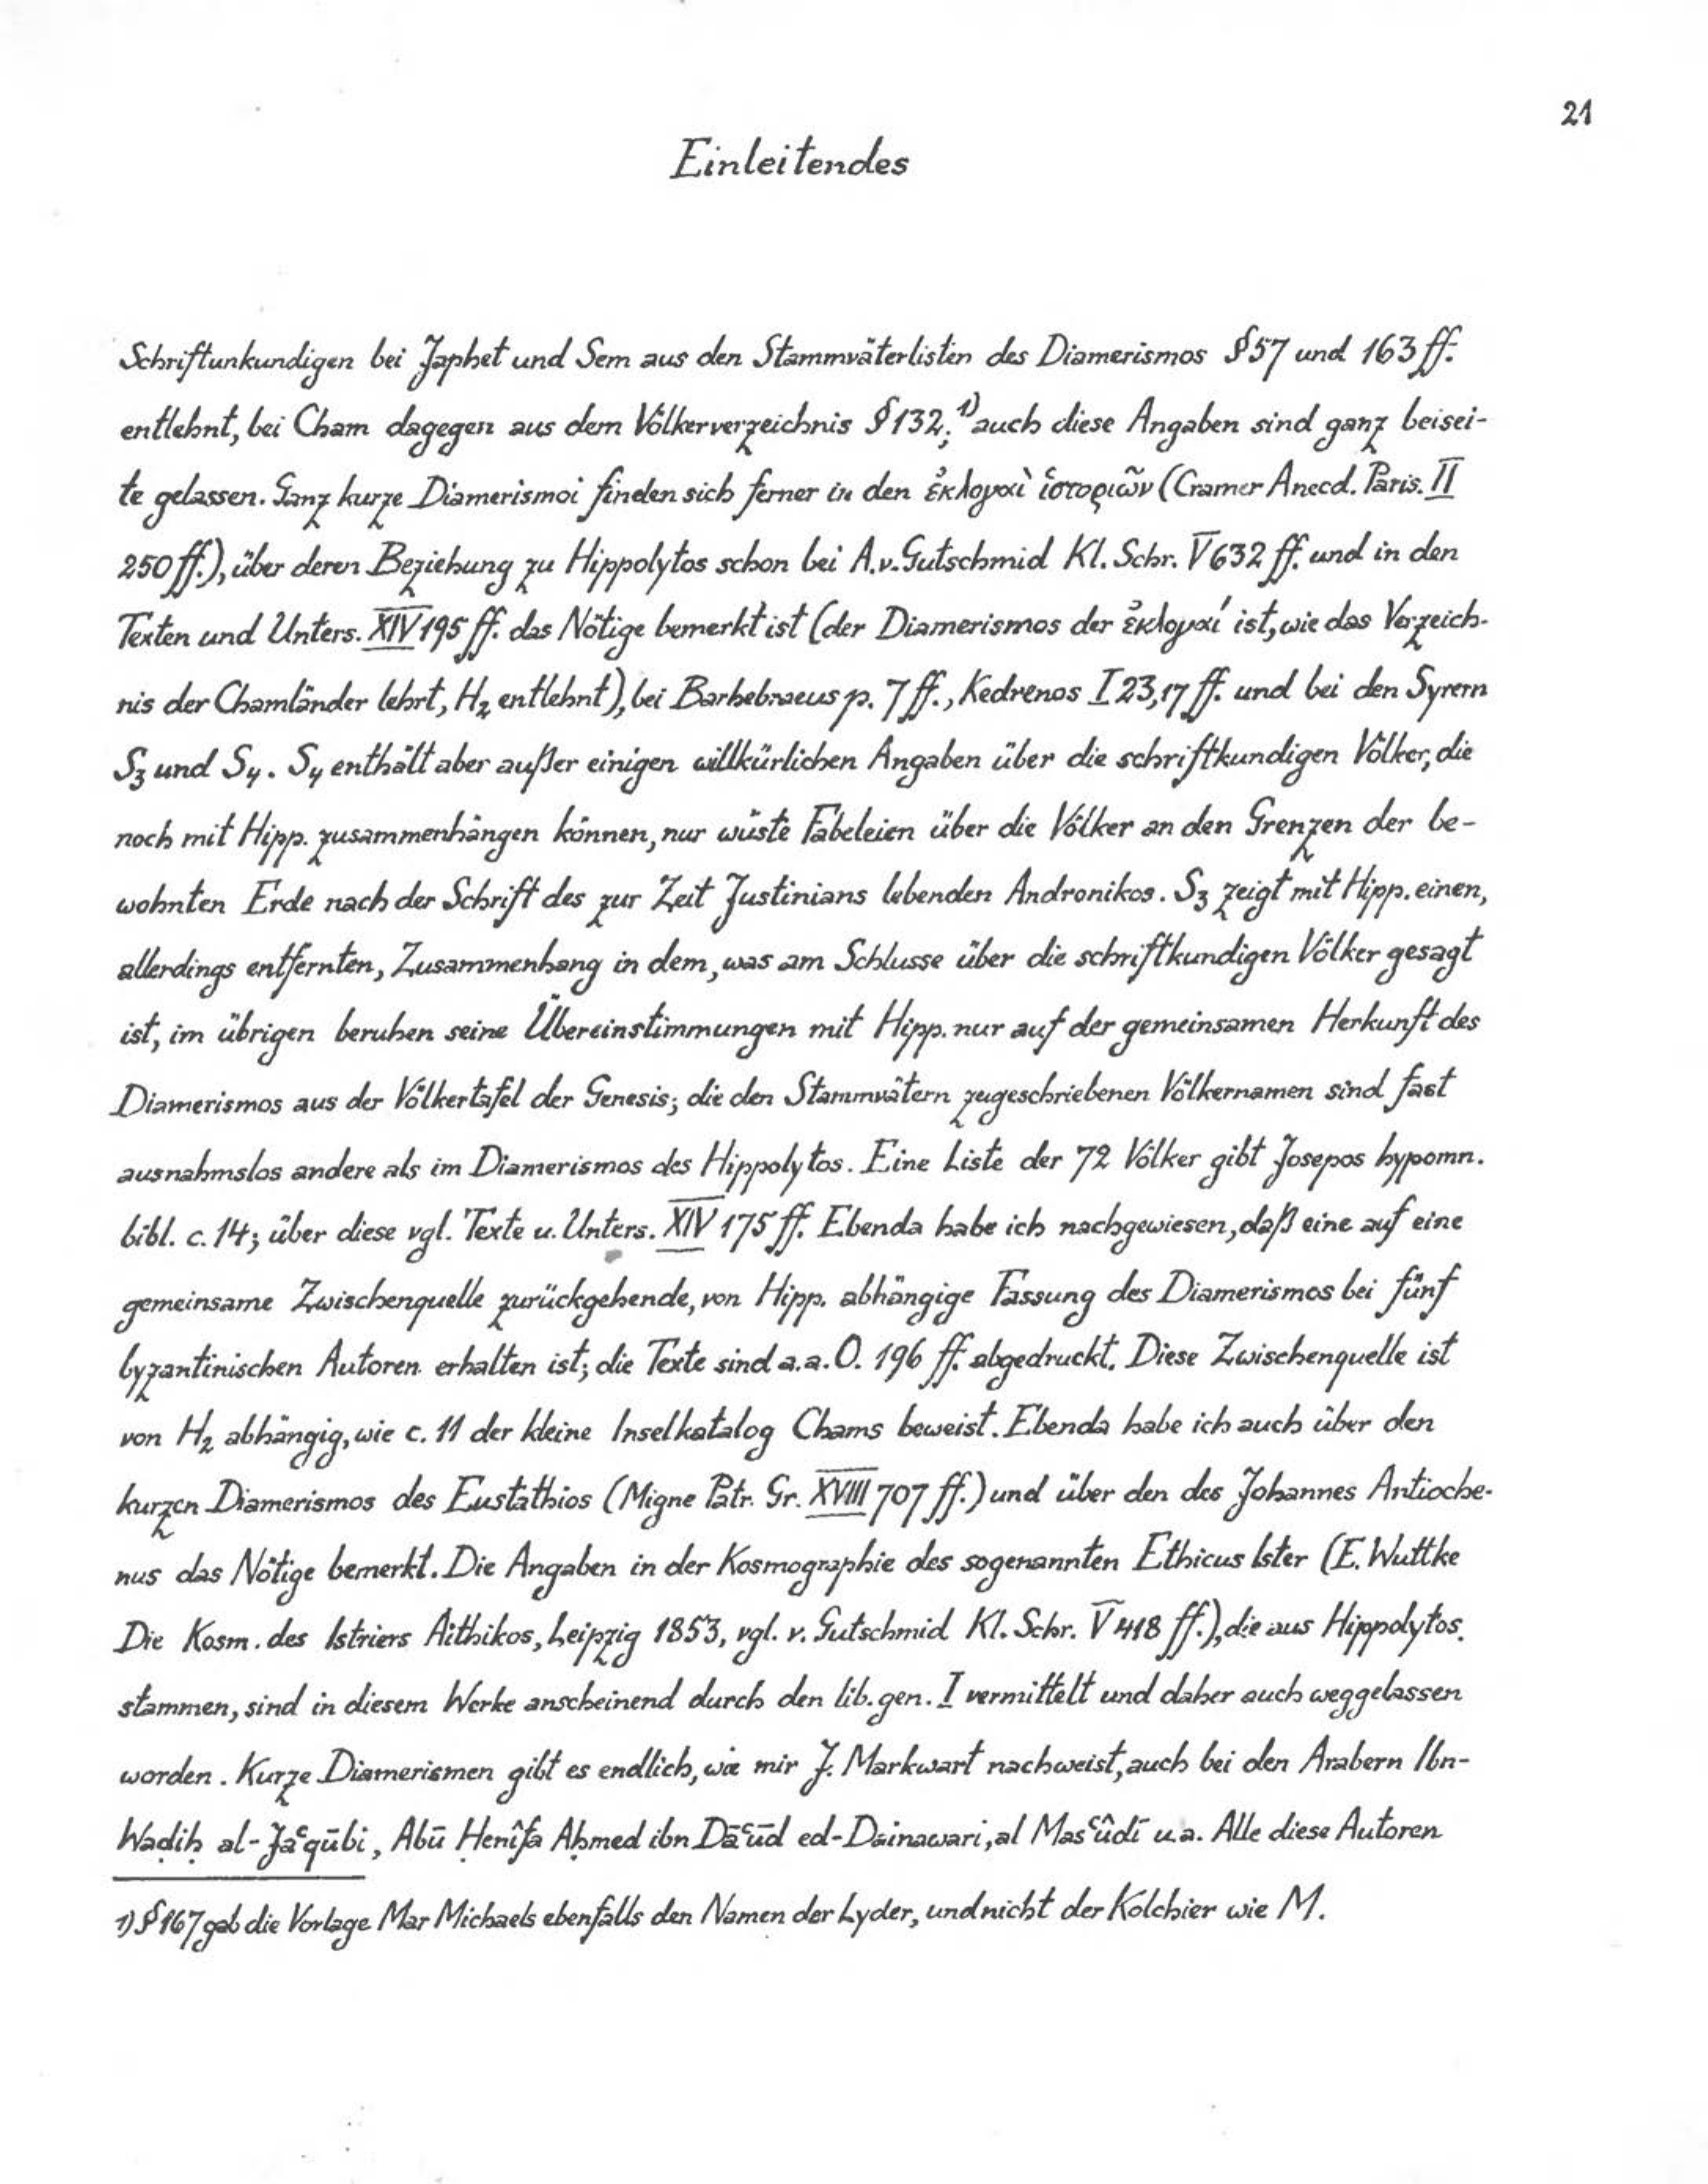 21
Einleitendes
Schriftunkundigen bei Japhet und Sem aus den Stammväterlisten des Diamerismos § 57 und 163 ff.
entlehnt, bei Cham dagegen aus dem Völkerverzeichnis § 132;¹⁾ auch diese Angaben sind ganz beisei-
te gelassen. Ganz kurze Diamerismoi finden sich ferner in den ἐκλογαὶ ἱστοριῶν (Cramer Anecd. Paris. II
250 ff.), über deren Beziehung zu Hippolytos schon bei A. v. Gutschmid Kl. Schr. V 632 ff. und in den
Texten und Unters. XIV 195 ff. das Nötige bemerkt ist (der Diamerismos der ἐκλογαί ist, wie das Verzeich-
nis der Chamländer lehrt, H₂ entlehnt), bei Barhebraeus p. 7 ff., Kedrenos I 23,17 ff. und bei den Syrern
S₃ und S₄. S₄ enthält aber außer einigen willkürlichen Angaben über die schriftkundigen Völker, die
noch mit Hipp. zusammenhängen können, nur wüste Fabeleien über die Völker an den Grenzen der be-
wohnten Erde nach der Schrift des zur Zeit Justinians lebenden Andronikos. S₃ zeigt mit Hipp. einen,
allerdings entfernten, Zusammenhang in dem, was am Schlusse über die schriftkundigen Völker gesagt
ist, im übrigen beruhen seine Übereinstimmungen mit Hipp. nur auf der gemeinsamen Herkunft des
Diamerismos aus der Völkertafel der Genesis; die den Stammvätern zugeschriebenen Völkernamen sind fast
ausnahmslos andere als im Diamerismos des Hippolytos. Eine Liste der 72 Völker gibt Josepos hypomn.
bibl. c. 14; über diese vgl. Texte u. Unters. XIV 175 ff. Ebenda habe ich nachgewiesen, daß eine auf eine
gemeinsame Zwischenquelle zurückgehende, von Hipp. abhängige Fassung des Diamerismos bei fünf
byzantinischen Autoren erhalten ist; die Texte sind a. a. O. 196 ff. abgedruckt. Diese Zwischenquelle ist
von H₂ abhängig, wie c. 11 der kleine Inselkatalog Chams beweist. Ebenda habe ich auch über den
kurzen Diamerismos des Eustathios (Migne Patr. Gr. XVIII 707 ff.) und über den des Johannes Antioche-
nus das Nötige bemerkt. Die Angaben in der Kosmographie des sogenannten Ethicus Ister (E. Wuttke
Die Kosm. des Istriers Aithikos, Leipzig 1853, vgl. v. Gutschmid Kl. Schr. V 418 ff.), die aus Hippolytos
stammen, sind in diesem Werke anscheinend durch den lib. gen. I vermittelt und daher auch weggelassen
worden. Kurze Diamerismen gibt es endlich, wie mir J. Markwart nachweist, auch bei den Arabern Ibn-
Waḍiḥ al-Jaʿqūbi, Abū Ḥenîfa Aḥmed ibn Dāʿūd ed-Dainawari, al Masʿûdī u. a. Alle diese Autoren
1) § 167 gab die Vorlage Mar Michaels ebenfalls den Namen der Lyder, und nicht der Kolchier wie M.